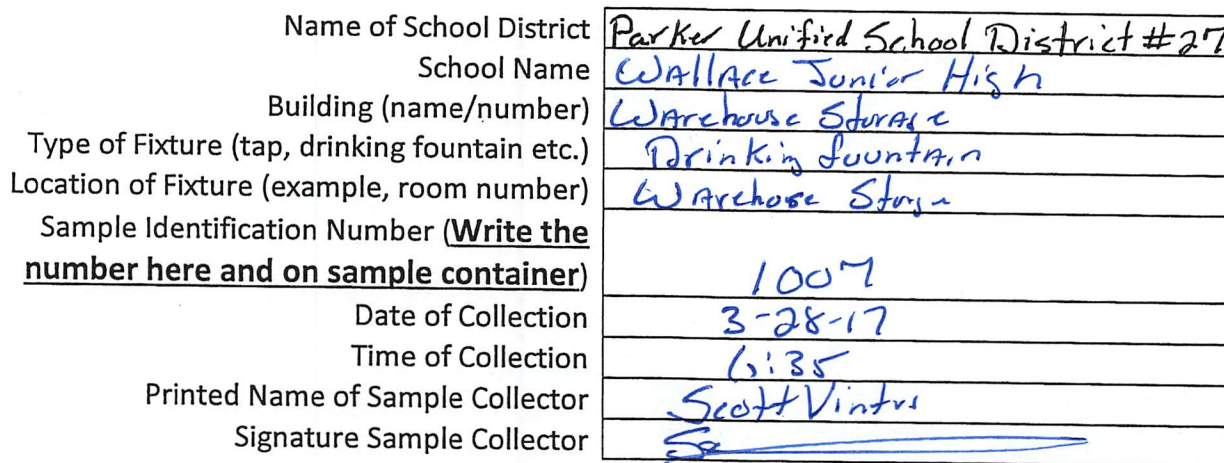 Name of School District Parker Unified School District #27
School Name Wallace Junior High
Building (name/number) Warehouse Storage
Type of Fixture (tap, drinking fountain etc.) Drinking fountain
Location of Fixture (example, room number) Warehose
Sample Identification Number (Write the
number here and on sample container) 1007
Date of Collection 3-28-17
Time of Collection 6:35
Printed Name of Sample Collector Scott
Signature Sample Collector